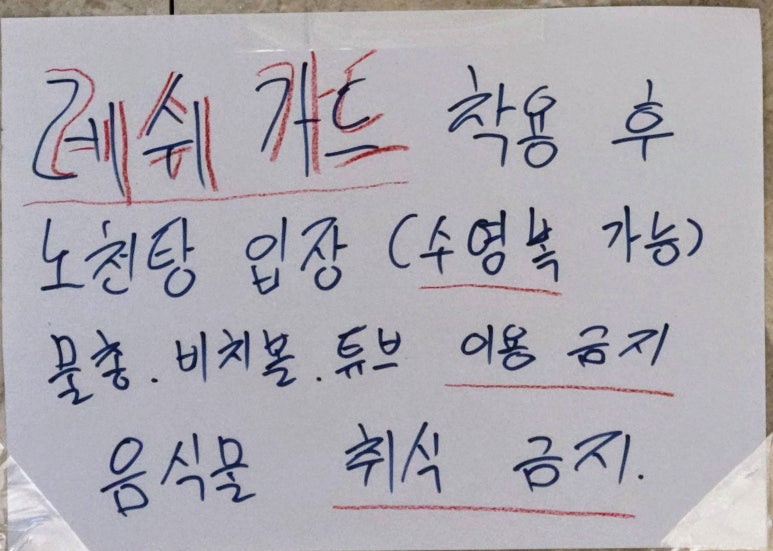 레쉬 가드 착용 후
노천탕 입장 (수영복 가능)
물총. 비치볼. 튜브 이용 금지
음식물 취식 금지.